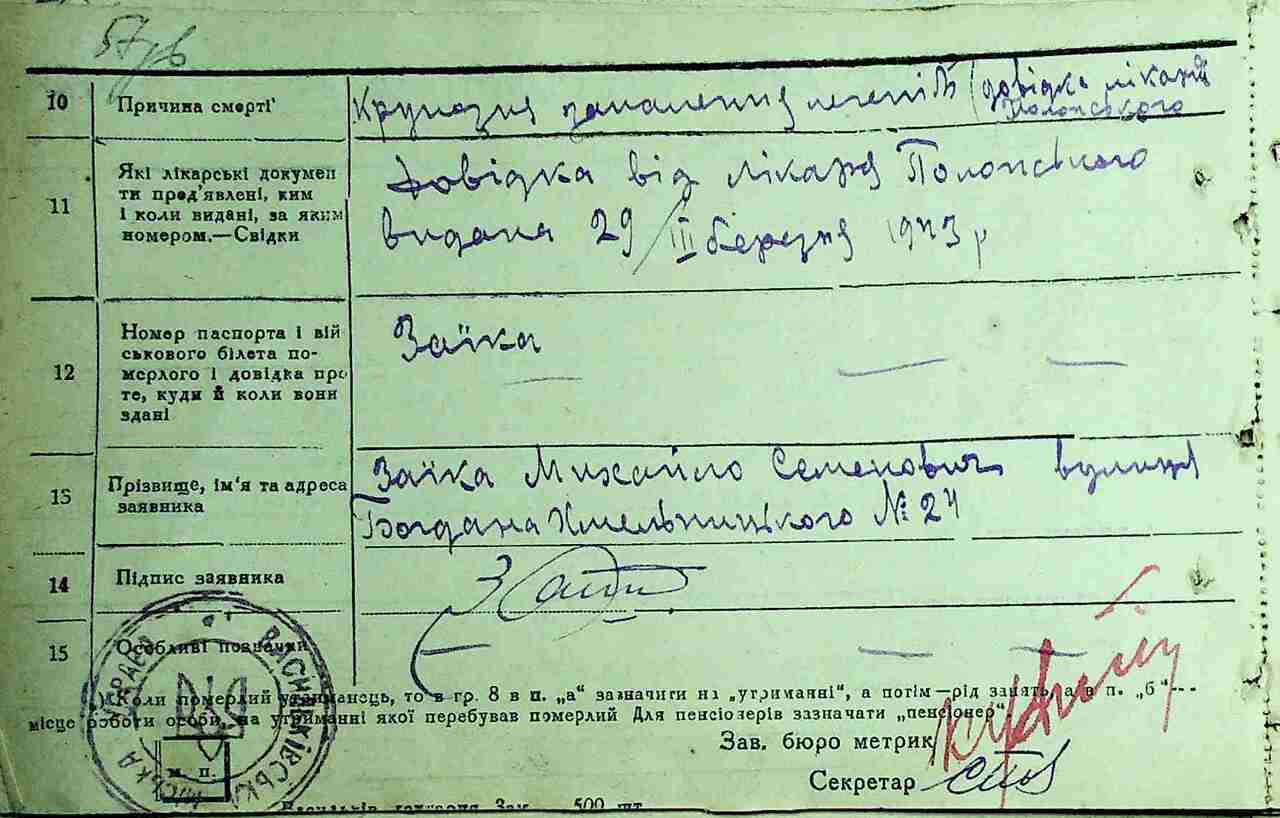 57зв
10 Причина смерті' Крупозне запалення легенів (довідка лікаря Полонського
11 Які лікарські докумен
ти пред'явлені, ким
і коли видані, за яким
номером.—Свідки
Довідка від лікаря Полонського
видана 29/III березня 1943 р
12 Номер паспорта і вій
ськового білета по-
мерлого і довідка про
те, куди й коли вони
здані
Заїка
13 Прізвище, ім'я та адреса
заявника
Заїка Михайло Семенович вулиця
Богдана Хмельницького № 24
14 Підпис заявника
15 Особливі позначки
) Коли померлий утриманець, то в гр. 8 в п. „а" зазначити на „утриманні", а потім—рід занять, а в п. „б"---
місце роботи особи, на утриманні якої перебував померлий Для пенсіонерів зазначати „пенсіонер"
Зав. бюро метрик
Секретар
м. п.
ВАСИЛЬКІВСЬКА УПРАВА
500 шт.